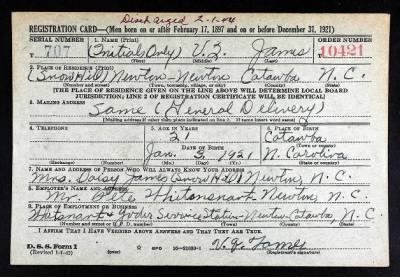 Discharged 2-1-44
REGISTRATION CARD—(Men born on or after February 17, 1897 and on or before December 31, 1921)
SERIAL NUMBER 1. NAME (Print) ORDER NUMBER
707 (Initials Only) V. Z. James 10421
(First) (Middle) (Last)
2. PLACE OF RESIDENCE (Print)
(Snow Hill) Newton - Newton Catawba N. C.
(Number and street) (Town, township, village, or city) (County) (State)
[THE PLACE OF RESIDENCE GIVEN ON THE LINE ABOVE WILL DETERMINE LOCAL BOARD
JURISDICTION; LINE 2 OF REGISTRATION CERTIFICATE WILL BE IDENTICAL]
3. MAILING ADDRESS
Same (General Delivery)
[Mailing address if other than place indicated on line 2. If same insert word same]
4. TELEPHONE 5. AGE IN YEARS 6. PLACE OF BIRTH
21 Catawba
DATE OF BIRTH (Town or county)
Jan. 3, 1921 N. Carolina
(Exchange) (Number) (Mo.) (Day) (Yr.) (State or country)
7. NAME AND ADDRESS OF PERSON WHO WILL ALWAYS KNOW YOUR ADDRESS
Mrs. Daisy James (Snow Hill) Newton, N.C.
8. EMPLOYER'S NAME AND ADDRESS
Mr. Pete Newton, N.C.
9. PLACE OF EMPLOYMENT OR BUSINESS
Service Station - Newton Catawba, N.C.
(Number and street or R. F. D. number) (Town) (County) (State)
I AFFIRM THAT I HAVE VERIFIED ABOVE ANSWERS AND THAT THEY ARE TRUE.
D. S. S. Form 1
(Revised 1-1-42) (over) V. Z. James
(Registrant's signature)